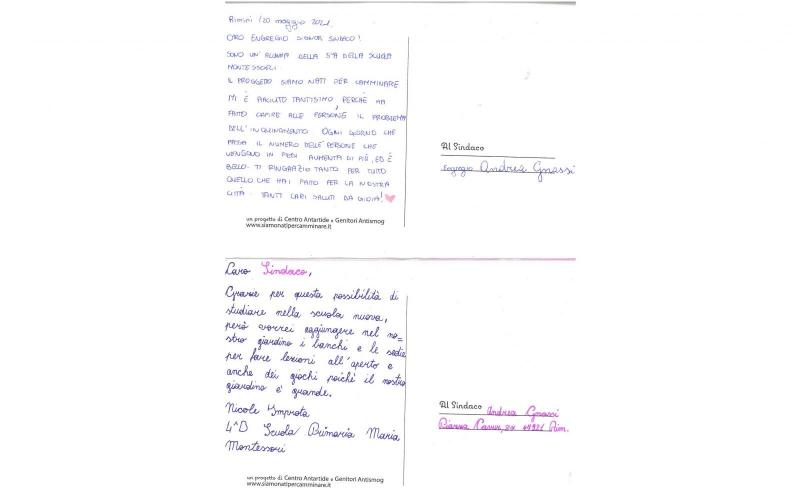 Rimini, 20 maggio 2021.
CARO ENGREGIO SIGNOR SINDACO!
SONO UN'ALUNNA DELLA 5ªA DELLA SCUOLA
MONTESSORI.
IL PROGGETTO SIAMO NATI PER CAMMINARE
MI È PIACIUTO TANTISSIMO, PERCHÈ HA
FATTO CAPIRE ALLE PERSONE IL PROBLEMA
DELL'INQUINAMENTO. OGNI GIORNO CHE
PASSA IL NUMERO DELLE PERSONE CHE
VENGONO IN PIEDI AUMENTA DI PIÙ, ED È
BELLO. TI RINGRAZIO TANTO PER TUTTO
QUELLO CHE HAI FATTO PER LA NOSTRA
CITTÀ. TANTI CARI SALUTI DA GIOIA!
un progetto di Centro Antartide e Genitori Antismog
www.siamonatipercamminare.it
Al Sindaco
Engregio Andrea Gnassi
Caro Sindaco,
Grazie per questa possibilità di
studiare nella scuola nuova,
però vorrei aggiungere nel no=
stro giardino i banchi e le sedie
per fare lezioni all'aperto e
anche dei giochi poichè il nostro
giardino è grande.
Nicole Improta
4^D Scuola Primaria Maria
Montessori
un progetto di Centro Antartide e Genitori Antismog
www.siamonatipercamminare.it
Al Sindaco Andrea Gnassi
Piazza Cavour, 47921 Rim.